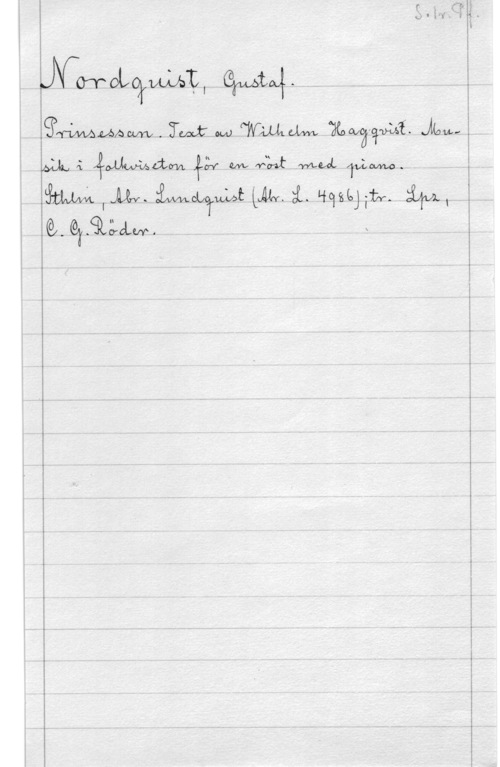 S. br. 9 f.
Nordquist, Gustaf.
Prinsessan. Text av Wilhelm Haggqvist. Mu-
sik i folkviseton för en röst med piano.
Sthlm, Abr. Lundquist (Abr. L. 4986); tr. Lpz,
C. G. Röder.